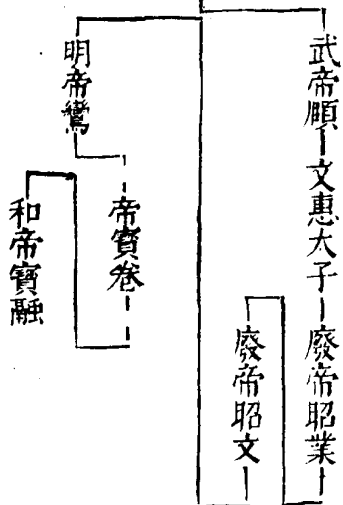 武帝
文惠太子
廢帝昭業
廢帝昭文
明帝鸞
帝寶卷
和帝寶融